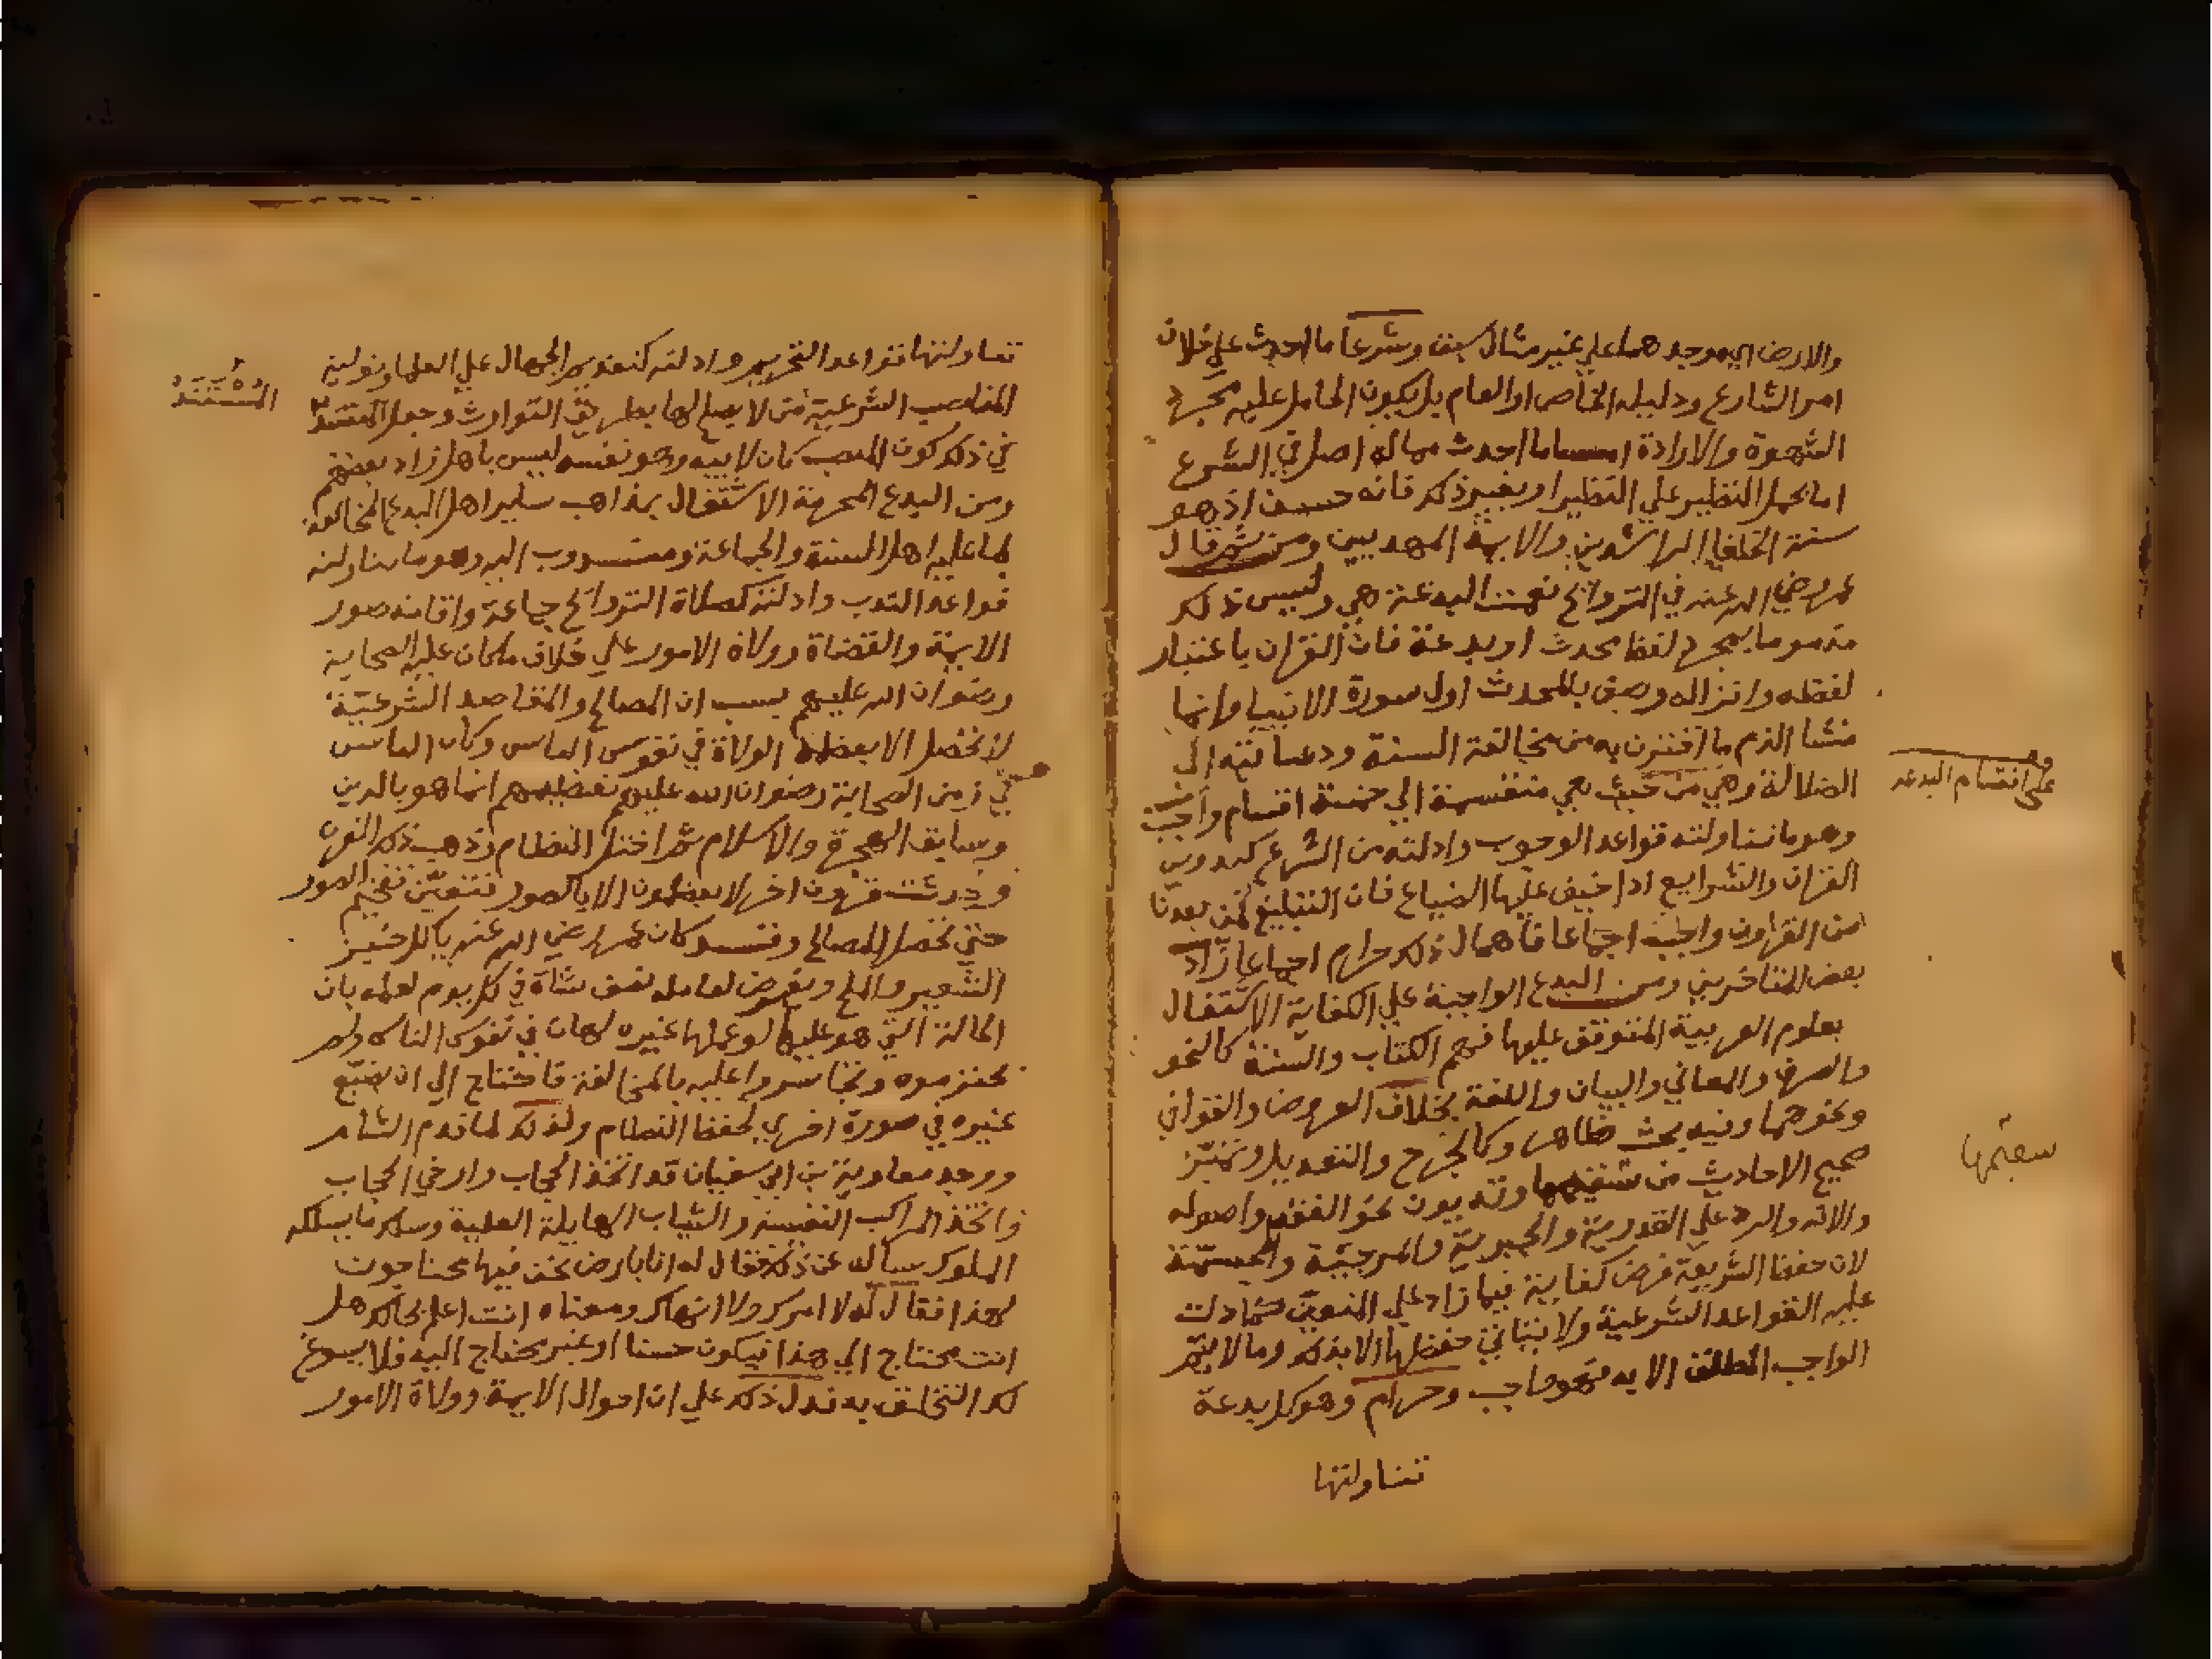 والارض اي موجدهما علي غير مثال سبق وشرعا ما احدث علي خلاف
امر الشارع ودليله الخاص او العام بل يكون الحامل عليه مجرد
الشهوة والارادة اما ما احدث مما له اصل في الشرع
اما بحمل النظير علي النظير او بغير ذلك فانه حسن اذ هو
سنة الخلفا الراشدين والايمة المهديين ومن ثم قال
عمر رضي الله عنه في التراويح نعمت البدعة هي وليس ذلك
مذموما بمجرد لفظ محدث او بدعة فان القران باعتبار
لفظه وانزاله وصف بالمحدث اول سورة الانبيا وانما
منشا الذم ما اقترن به من مخالفة السنة ودعايته الي
الضلالة وهي من حيث هي منقسمة الي خمسة اقسام واجب
وهو ما تناولته قواعد الوجوب وادلته من الشرع كتدوين
القران والشرايع اذا خيف عليها الضياع فان التبليغ لمن بعدنا
من القرون واجب اجماعا فاهمال ذلك حرام اجماعا زاد
بعض المتاخرين ومن البدع الواجبة علي الكفاية الاشتغال
بعلوم العربية المتوقف عليها فهم الكتاب والسنة كالنحو
والصرف والمعاني والبيان واللغة بخلاف العروض والقوافي
ونحوهما وفيه بحث ظاهر وكالجرح والتعديل وتمييز
صحيح الاحاديث من سقيمها وتدوين نحو الفقه واصوله
والاته والرد علي القدرية والجبرية والمرجئة والمجسمة
لان حفظ الشريعة فرض كفاية فيما زاد علي المتعين كما دلت
عليه القواعد الشرعية ولا يتاتي حفظها الا بذلك وما لا يتم
الواجب المطلق الا به فهو واجب وحرام وهو كل بدعة
تناولتها
علي انقسام البدعه
سقيمها
تناولتها قواعد التحريم وادلته كتقديم الجهال علي العلما وتولية
المناصب الشرعية من لا يصلح لها بطريق التوارث وجعل المستند
في ذلك كون المنصب كان لابيه وهو نفسه ليس باهل زاد بعضهم
ومن البدع المحرمة الاشتغال بمذاهب ساير اهل البدع المخالفة
لما عليه اهل السنة والجماعة ومندوب اليه وهو ما تناولته
قواعد الندب وادلته كصلاة التراويح جماعة واقامة صور
الايمة والقضاة وولاة الامور علي خلاف ما كان عليه الصحابة
رضوان الله عليهم بسبب ان المصالح والمقاصد الشرعية
لا تحصل الا بعظمة الولاة في نفوس الناس وكان الناس
في زمن الصحابة رضوان الله عليهم تعظيمهم انما هو بالدين
وسابق الهجرة والاسلام ثم اختل النظام وذهب ذلك القرن
وحدثت قرون اخر لا يعظمون الا بالصور فتعين تفخيم الصور
حتي تحصل المصالح وقد كان عمر رضي الله عنه ياكل خبز
الشعير والملح ويفرض لعامله نصف شاة في كل يوم لعلمه بان
الحالة التي هو عليها لو عملها غيره لهان في نفوس الناس ولم
يحترموه وتجاسروا عليه بالمخالفة فاحتاج الي ان يضع
غيره في صورة اخري لحفظ النظام ولذلك لما قدم الشام
ووجد معاوية بن ابي سفيان قد اتخذ الحجاب وارخي الحجاب
واتخذ المراكب النفيسة والثياب الهايلة العلية وسلك ما يسلكه
الملوك ساله عن ذلك فقال له انا بارض نحن فيها محتاجون
لهذا فقال له لا امرك ولا انهاك ومعناه انت اعلم بحالك هل
انت محتاج الي هذا فيكون حسنا او غير محتاج اليه فلا يسوغ
لك التخلق به فدل ذلك علي ان احوال الايمة وولاة الامور
المستند